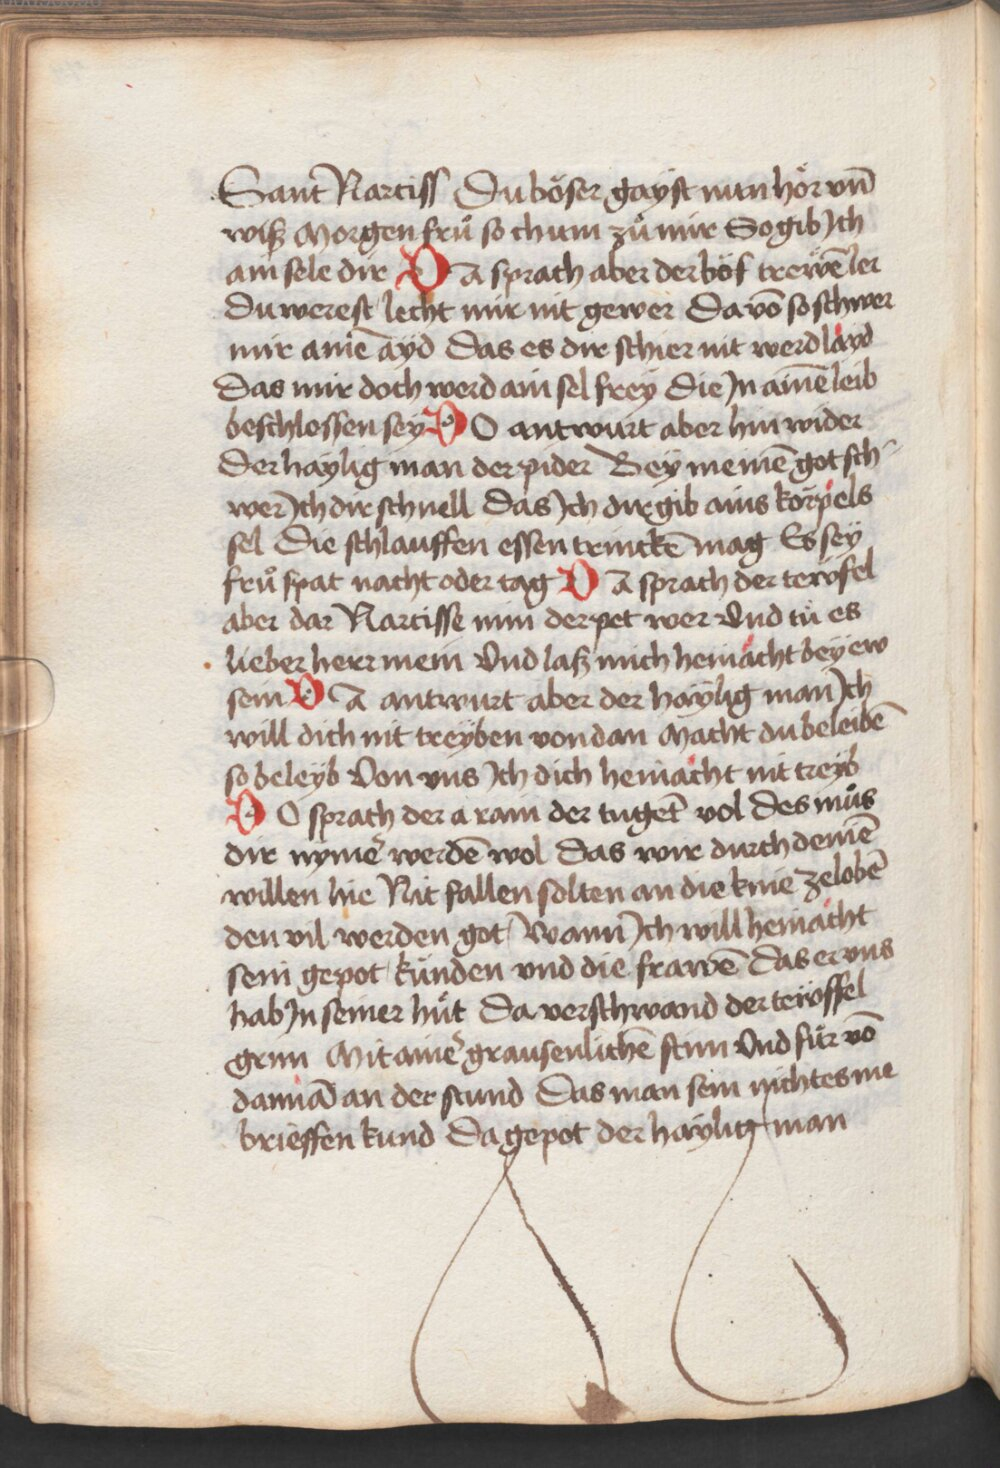 Sant Narciss Du böser gayst nun hör vnd̄
wiß Morgen frů so chum zů mir So gib Ich
ain sele dir DA sprach aber der böß trewē ler
Du werest lecht mir nit gewer Da võ so schwer
mir ainē ayd Das es dir schier nit werd layd
Das mir doch werd ain sel frey Die In ainē leib
beschlossen sey DO antwurt aber hin wider
Der haylig man der pider Bey meinē got sch-
wer Ich dir schnell Das Ich dir gib ains körpels
sel Die schlauffen essen trinckē mag Es sey
frů spat nacht oder tag DA sprach der tewfel
aber dar Narcisse nim der pet wer Vnd tů es
lieber herr mein Vnd laß mich heinacht bey ew
sein DA antwurt aber der haylig man Ich
will dich nit treyben von dan Macht du beleibē
so beleyb Von vns Ich dich heinacht nit treyb
DO sprach der a rain der tugēt vol Des můs
dir nymē werdē wol Das wir durch deinē
willen hie Nit fallen solten an die knie zelobē
den vil werden got Wann Ich will heinacht
sein gepot künden vnd die frawē Das er vns
hab In seiner hůt Da verschwand der tewffel
grim Mit ainē grausenlichē stim Vnd für võ
dannā an der stund Das man sein nichtes me
brieffen kund Da gepot der haylig man